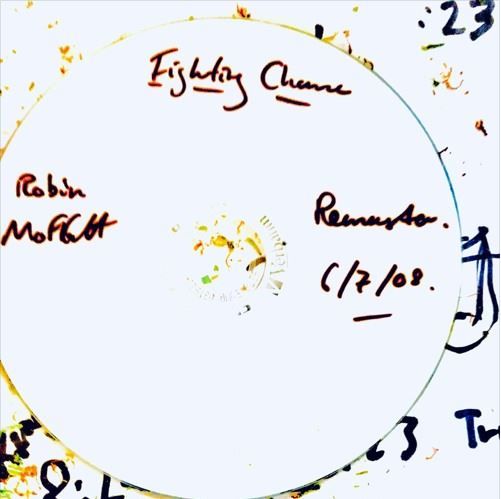 :23
Fighting Chance
Robin
Moffatt
Remaster.
6/7/08.
23